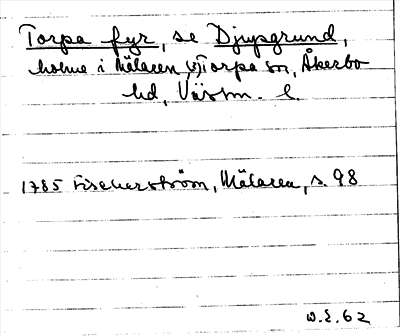 Torpa fyr, se Djupsgrund,
holme i Mälaren, v) Torpa sn, Åkerbo
hd, Västm. l.
1785 Fischerström, Mälaren, s. 98
W.E. 62